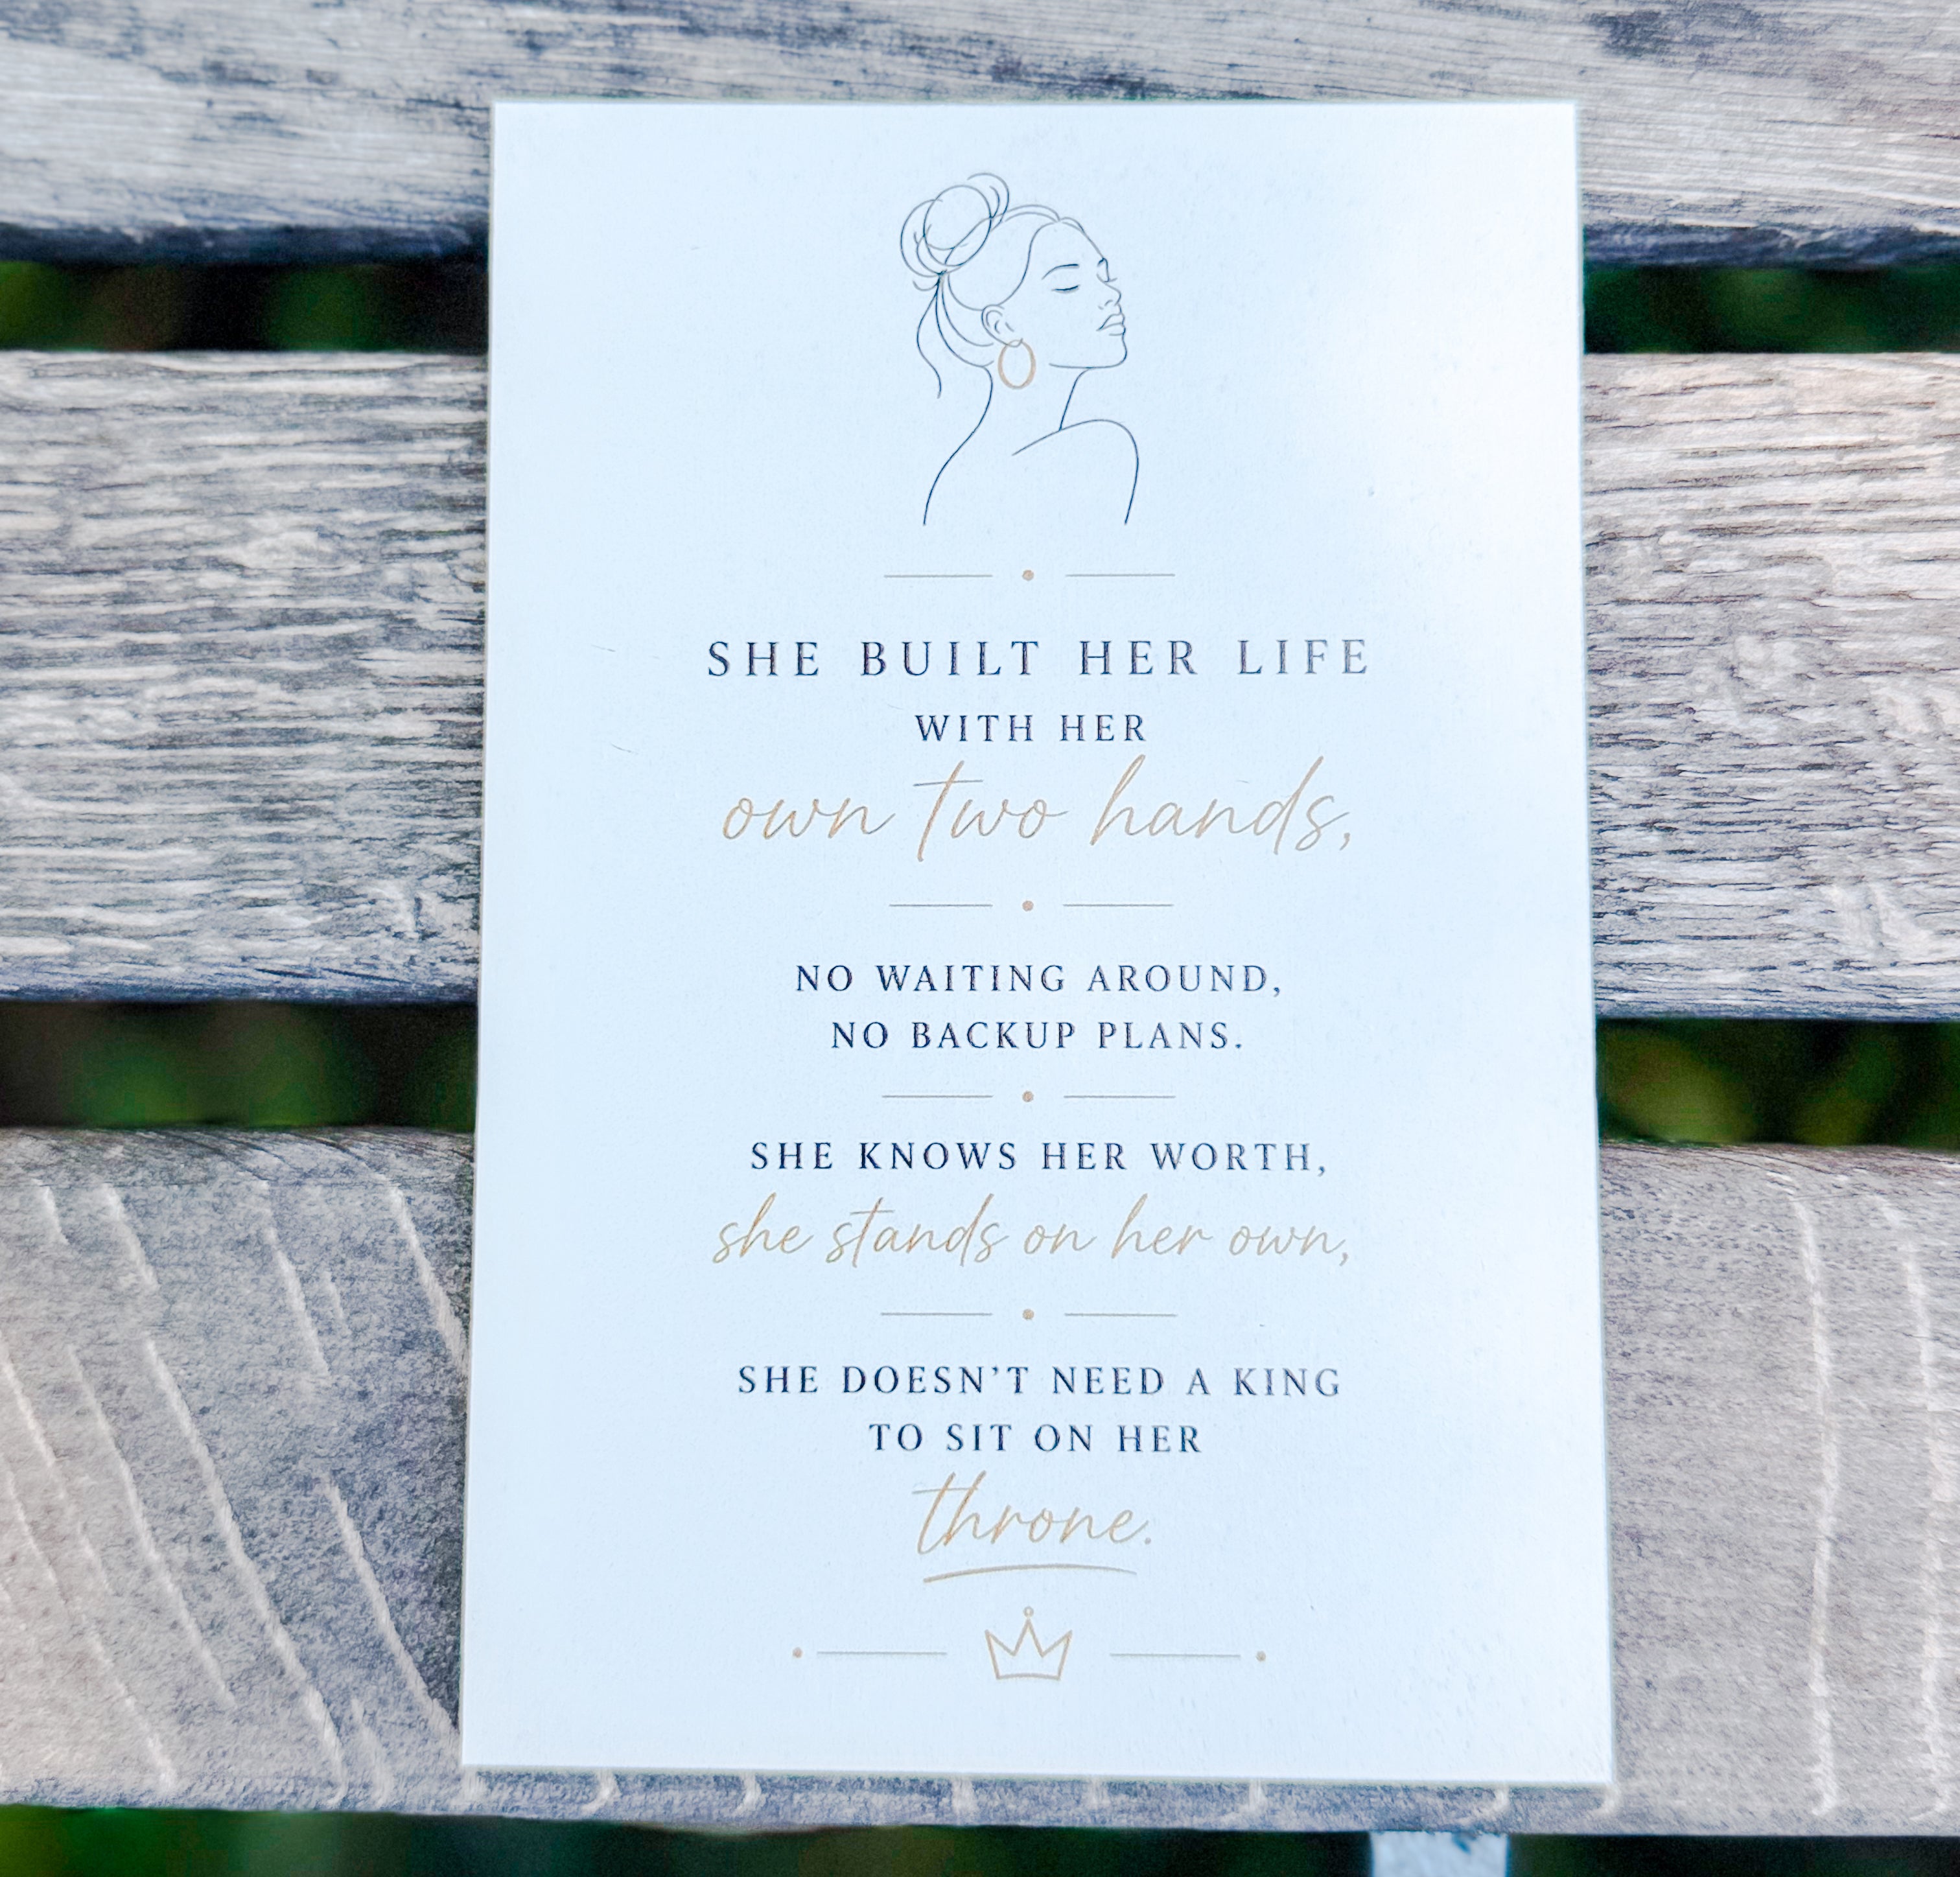 SHE BUILT HER LIFE
WITH HER
own two hands,
NO WAITING AROUND,
NO BACKUP PLANS.
SHE KNOWS HER WORTH,
she stands on her own,
SHE DOESN'T NEED A KING
TO SIT ON HER
throne.